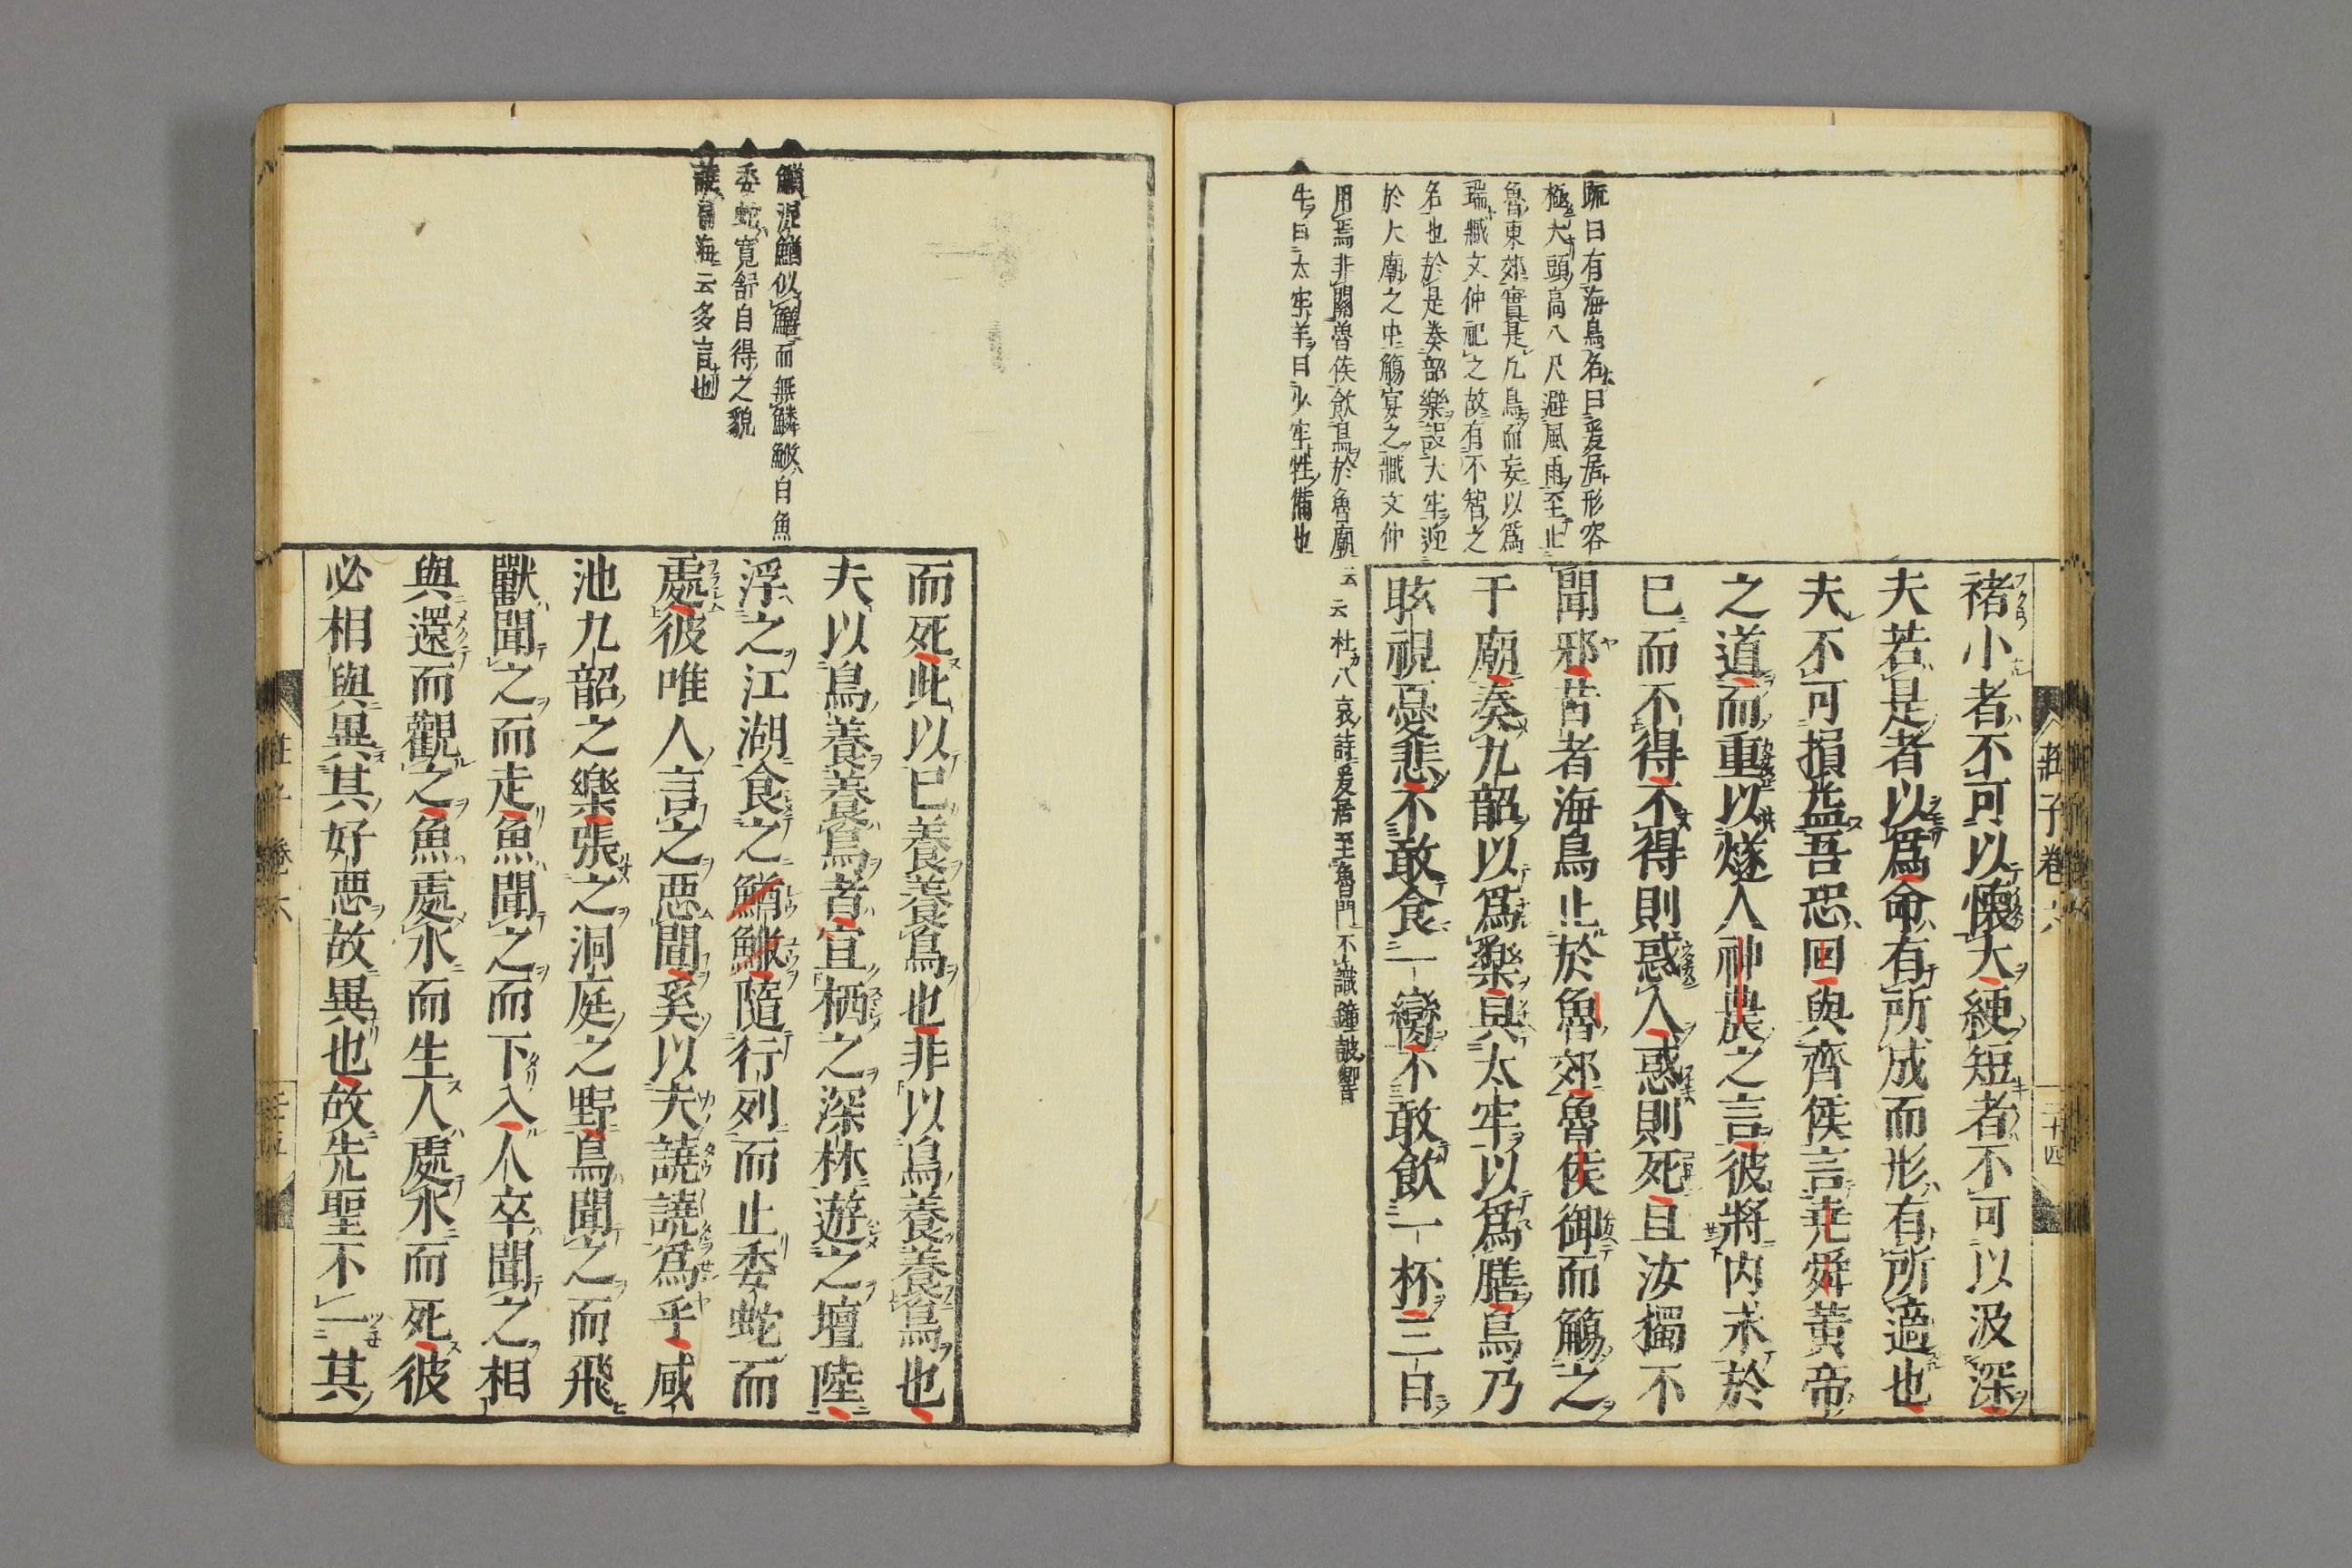 疏曰有海鳥名曰爰居形容
極大頭高八尺避風雨至止
魯東郊實是凡鳥而妄以爲
瑞臧文仲祀之故有不智之
名也於是奏韶樂設大牢迎
於大廟之中觴宴之臧文仲
用焉非關魯侯飮鳥於魯廟云云杜八哀詩爰居至魯門不識鐘皷響
牛曰太牢羊曰少牢牲備也
莊子卷六
三十四
褚小者不可以懷大綆短者不可以汲深
夫若是者以爲命有所成而形有所適也
夫不可損益吾恐回與齊侯言堯舜黃帝
之道而重以燧人神農之言彼將内求於
已而不得不得則惑人惑則死且汝獨不
聞邪昔者海鳥止於魯郊魯侯御而觴之
于廟奏九韶以爲樂具太牢以爲膳鳥乃
眩視憂悲不敢食一臠不敢飮一杯三日
鰌泥鰌似鱓而無鱗䱔白魚
委蛇寬舒自得之貌
譊音海云多言也
而死此以已養養鳥也非以鳥養養鳥也
夫以鳥養養鳥者宜栖之深林遊之壇陸
浮之江湖食之鰌䱔隨行列而止委蛇而
處彼唯人言之惡聞奚以夫譊譊爲乎咸
池九韶之樂張之洞庭之野鳥聞之而飛
獸聞之而走魚聞之而下入人卒聞之相
與還而觀之魚處水而生人處水而死彼
必相與異其好惡故異也故先聖不一其